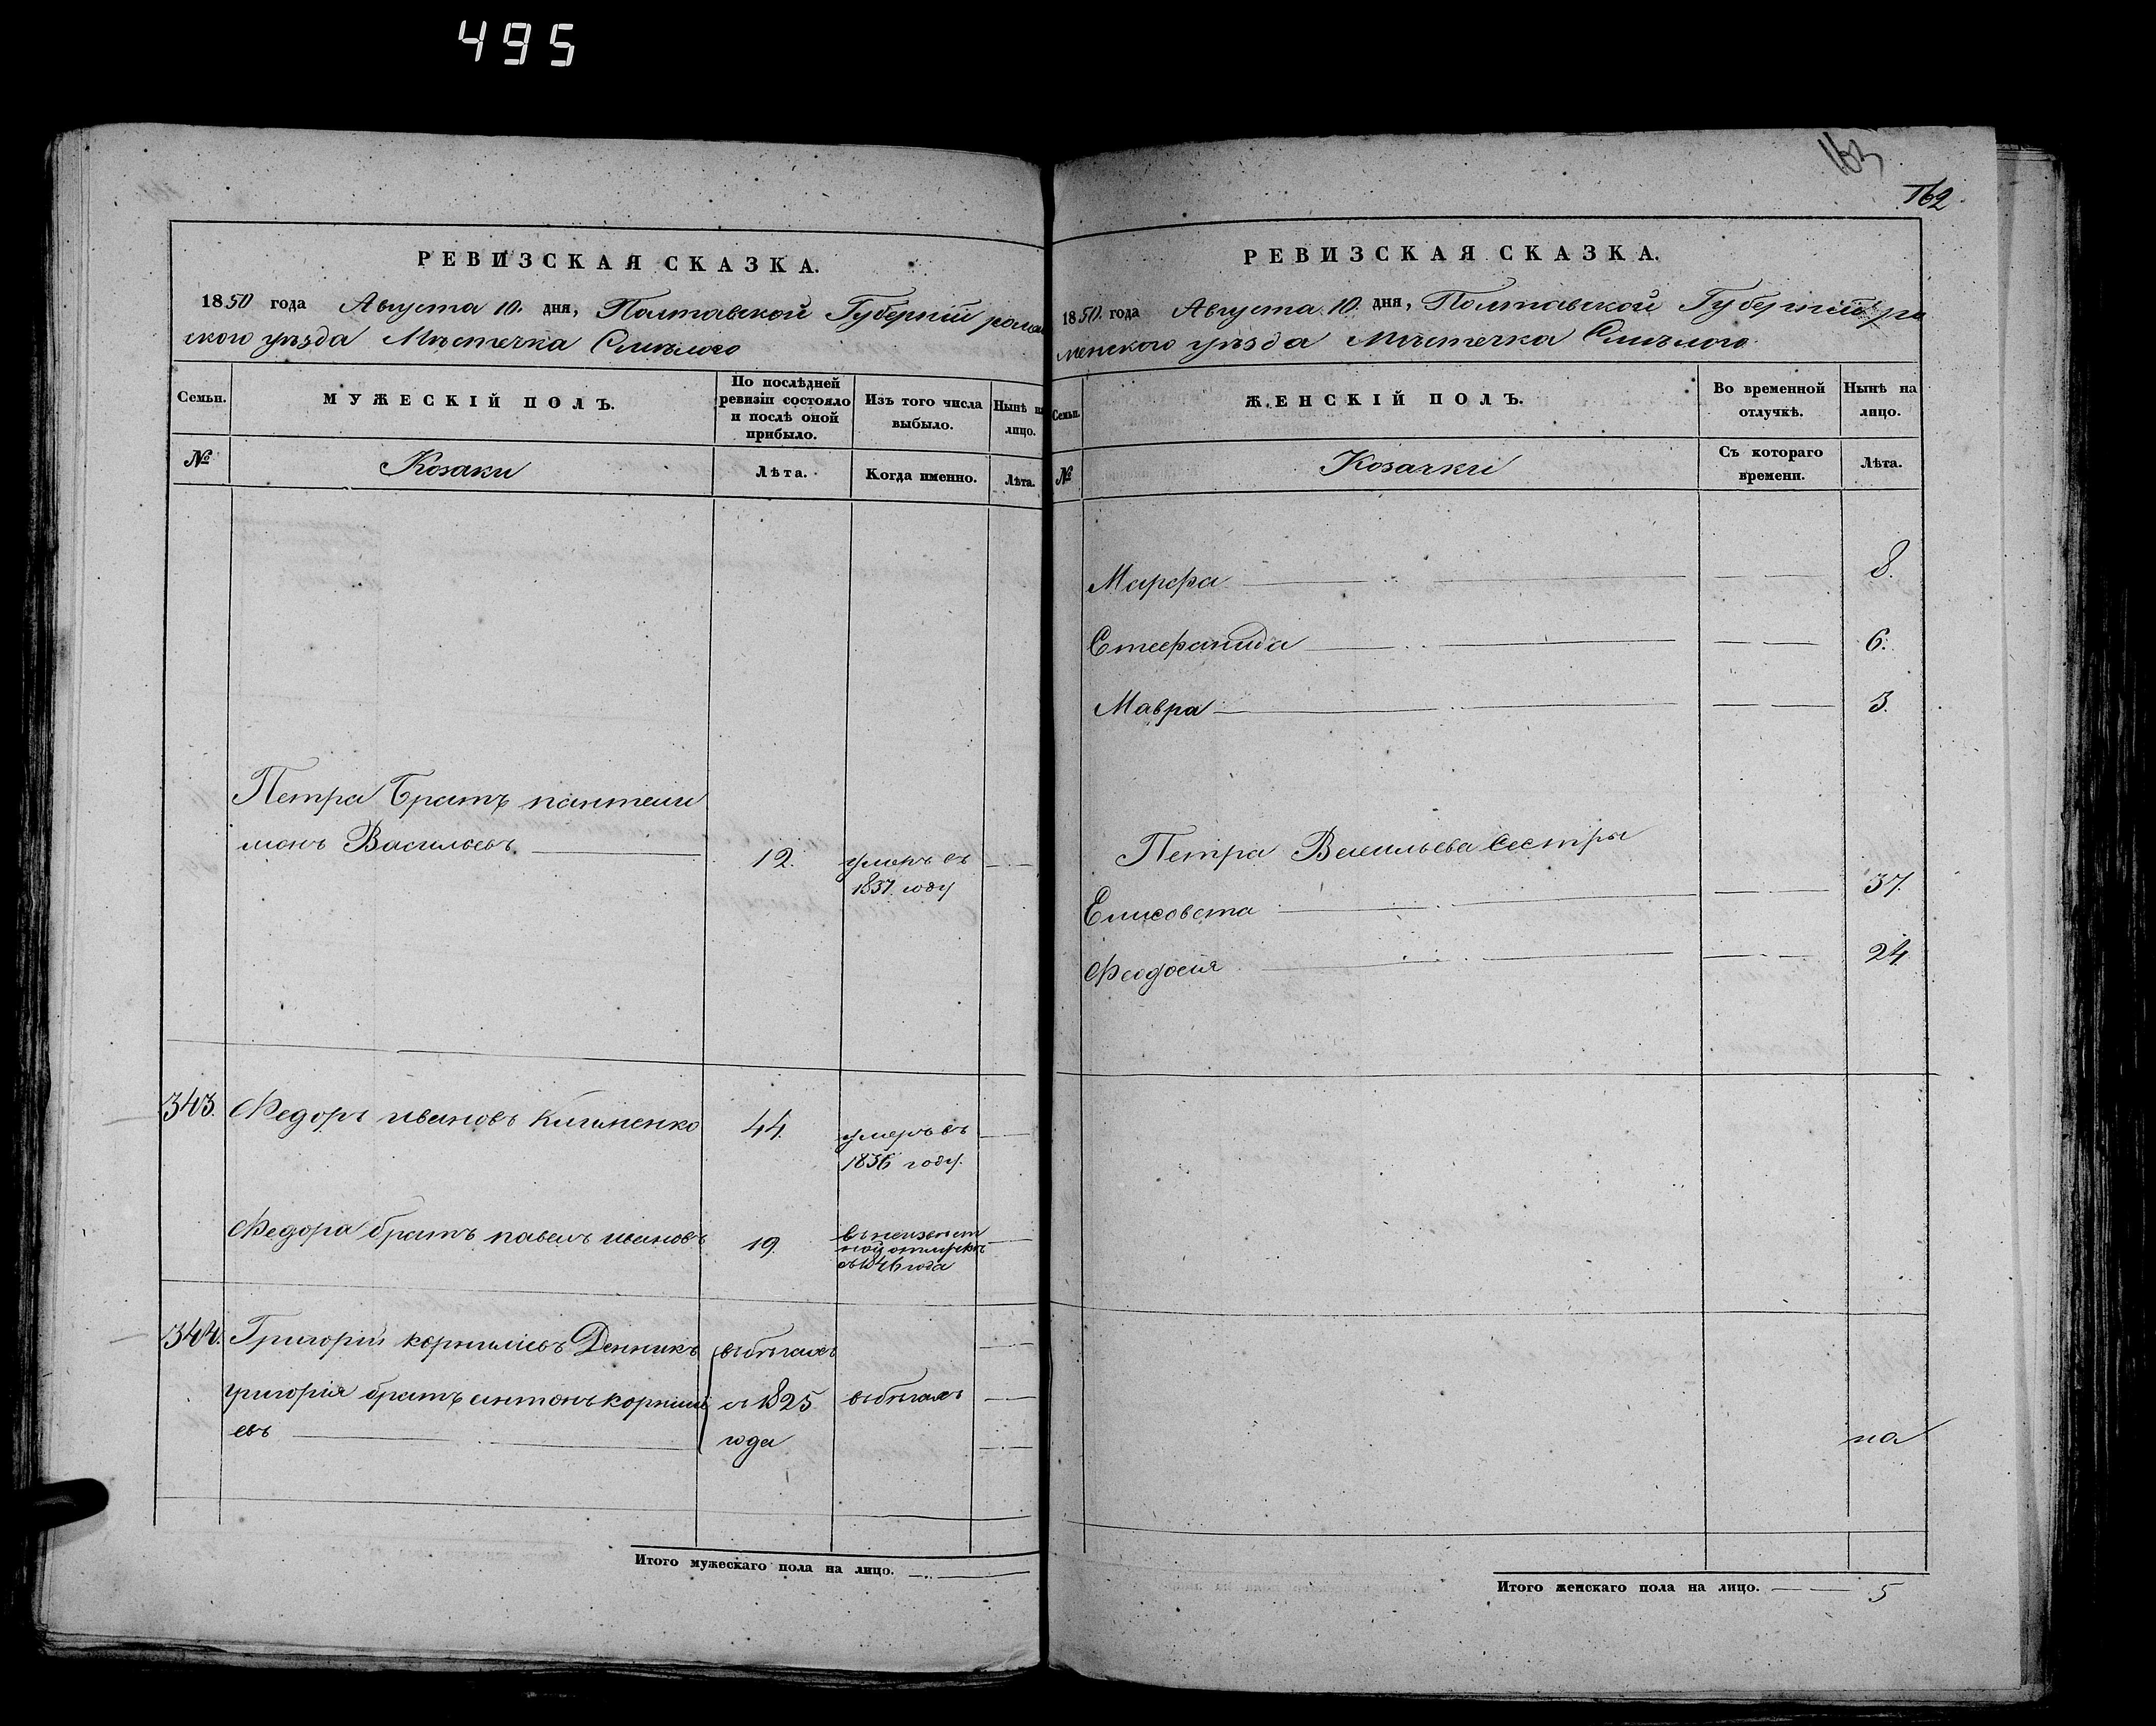 495
РЕВИЗСКАЯ СКАЗКА.
1850 года Августа 10. дня, Полтавской Губерніи ромен
ского уѣзда Мѣстечка Смѣлого
Семьи.
МУЖЕСКІЙ ПОЛЪ.
По послѣдней ревизіи состояло и послѣ оной прибыло.
Изъ того числа выбыло.
Нынѣ на лицо.
№
Козаки
Лѣта.
Когда именно.
Лѣта.
Петра Братъ пантели
монъ Васильевъ 12. умеръ въ
1837. году
343. Федоръ ивановъ Кигиненко 44. умеръ въ
1836 году.
Федора братъ павелъ ивановъ 19. въ неизвѣст
ной отлучкѣ
съ 1846 года
344. Григорій корниліевъ Денникъ въ бѣгахъ
григорія братъ антонъ корнилі съ 1825 въ бѣгахъ
евъ года
Итого мужескаго пола на лицо.
163
162
РЕВИЗСКАЯ СКАЗКА.
1850. года Августа 10. дня, Полтавской Губерніи ро
менского уѣзда Мѣстечка Смѣлого
Семьи.
ЖЕНСКІЙ ПОЛЪ.
Во временной отлучкѣ.
Нынѣ на лицо.
№
Козачки
Съ котораго времени.
Лѣта.
Марфа 8.
Стефанида 6.
Мавра 3.
Петра Васильева сестры
Елисовета 37.
Феодосия 24.
на
Итого женскаго пола на лицо. 5